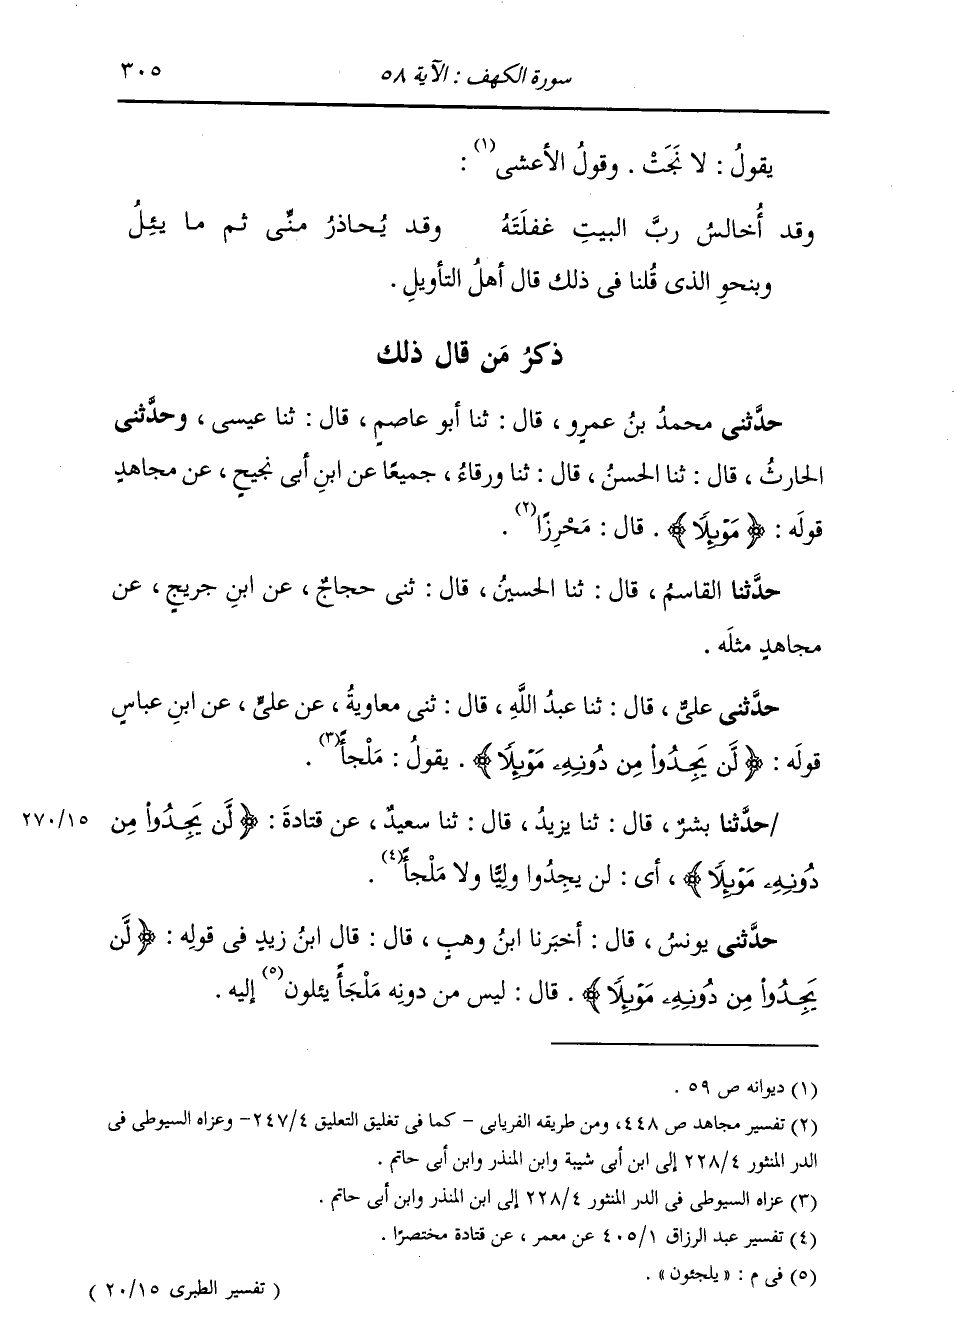 سورة الكهف : الآية ٥٨ ٣٠٥
يقولُ : لا نَجَتْ . وقولُ الأعشى(١) :
وقد أُخالسُ ربَّ البيتِ غفلَتَهُ وقد يُحاذرُ منِّى ثم ما يئِلُ
وبنحوِ الذى قُلنا فى ذلك قال أهلُ التأويلِ .
ذكرُ مَن قال ذلك
حدَّثنى محمدُ بنُ عمرٍو ، قال : ثنا أبو عاصمٍ ، قال : ثنا عيسى ، وحدَّثنى
الحارثُ ، قال : ثنا الحسنُ ، قال : ثنا ورقاءُ ، جميعًا عن ابنِ أبى نجيحٍ ، عن مجاهدٍ
قولَه : ﴿ مَوْئِلًا ﴾ . قال : مَحْرِزًا(٢) .
حدَّثنا القاسمُ ، قال : ثنا الحسينُ ، قال : ثنى حجاجٌ ، عن ابنِ جريجٍ ، عن
مجاهدٍ مثلَه .
حدَّثنى علىٌّ ، قال : ثنا عبدُ اللَّهِ ، قال : ثنى معاويةُ ، عن علىٍّ ، عن ابنِ عباسٍ
قولَه : ﴿ لَّن يَجِدُوا۟ مِن دُونِهِۦ مَوْئِلًا ﴾ . يقولُ : مَلْجأً(٣) .
/حدَّثنا بشرٌ ، قال : ثنا يزيدُ ، قال : ثنا سعيدٌ ، عن قتادةَ : ﴿ لَّن يَجِدُوا۟ مِن ٢٧٠/١٥
دُونِهِۦ مَوْئِلًا ﴾ ، أى : لن يجِدُوا ولِيًّا ولا مَلْجأً(٤) .
حدَّثنى يونسُ ، قال : أخبَرنا ابنُ وهبٍ ، قال : قال ابنُ زيدٍ فى قولِه : ﴿ لَّن
يَجِدُوا۟ مِن دُونِهِۦ مَوْئِلًا ﴾ . قال : ليس من دونِه مَلْجَأً يئلون(٥) إليه .
(١) ديوانه ص ٥٩ .
(٢) تفسير مجاهد ص ٤٤٨، ومن طريقه الفريابى - كما فى تغليق التعليق ٢٤٧/٤ - وعزاه السيوطى فى
الدر المنثور ٢٢٨/٤ إلى ابن أبى شيبة وابن المنذر وابن أبى حاتم .
(٣) عزاه السيوطى فى الدر المنثور ٢٢٨/٤ إلى ابن المنذر وابن أبى حاتم .
(٤) تفسير عبد الرزاق ٤٠٥/١ عن معمر ، عن قتادة مختصرًا .
(٥) فى م : « يلجئون » .
( تفسير الطبرى ٢٠/١٥ )